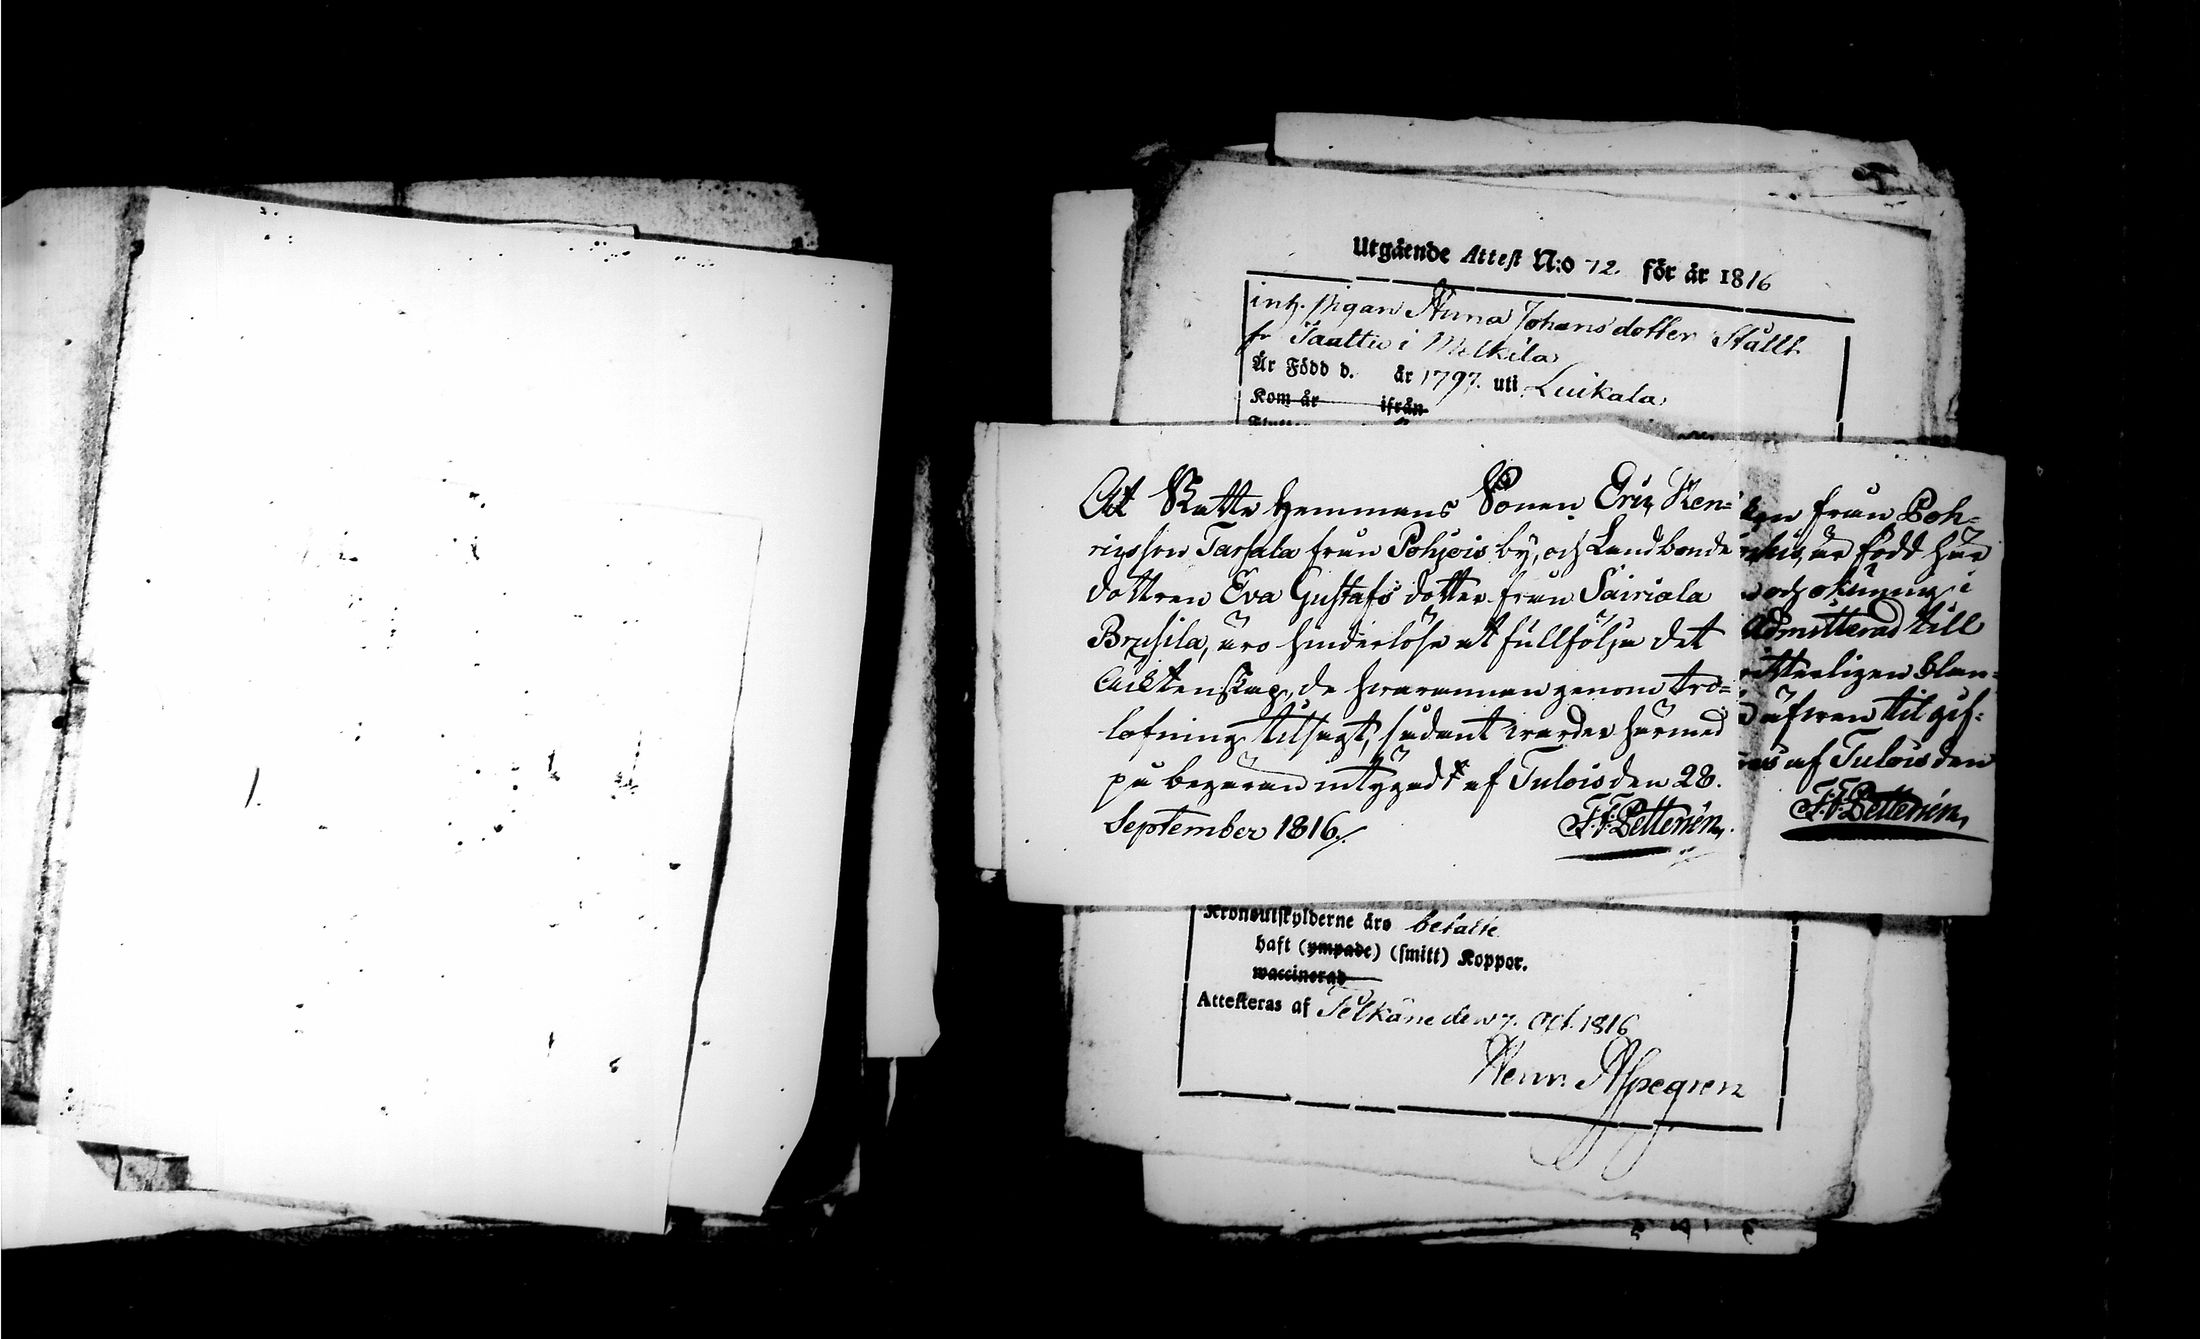 Utgående Attest N:o 72. för år 1816
inh. Pigan Anna Johans dotter Stållt
fr Taattu i Mälkila
Är Född d. år 1797. uti Luikala
Kom år ifrån
At Skatte Hemmans Sonen Eric Hen-
ricsson Tarsala från Pohjois by, och Landbonde
dottren Eva Gustafs dotter från Sairiala
Brusila, äro hinderlöse at fullfölja det
Äcktenskap, de hvarannan genom tro-
lofning tilsagt, sådant warder härmed
på begäran intygadt af Tulois den 28.
September 1816.
F. F. Pettersén
från Poh-
är född här
och okunnig i
Admitterad till
blan-
äfwen til gif-
af Tulois den
F. F. Pettersén
Kronoutskylderne äro betalte
haft (ympade) (smitt) Koppor.
waccinerad
Attesteras af Pelkäne den 7. Oct. 1816
Henr. Alpegren